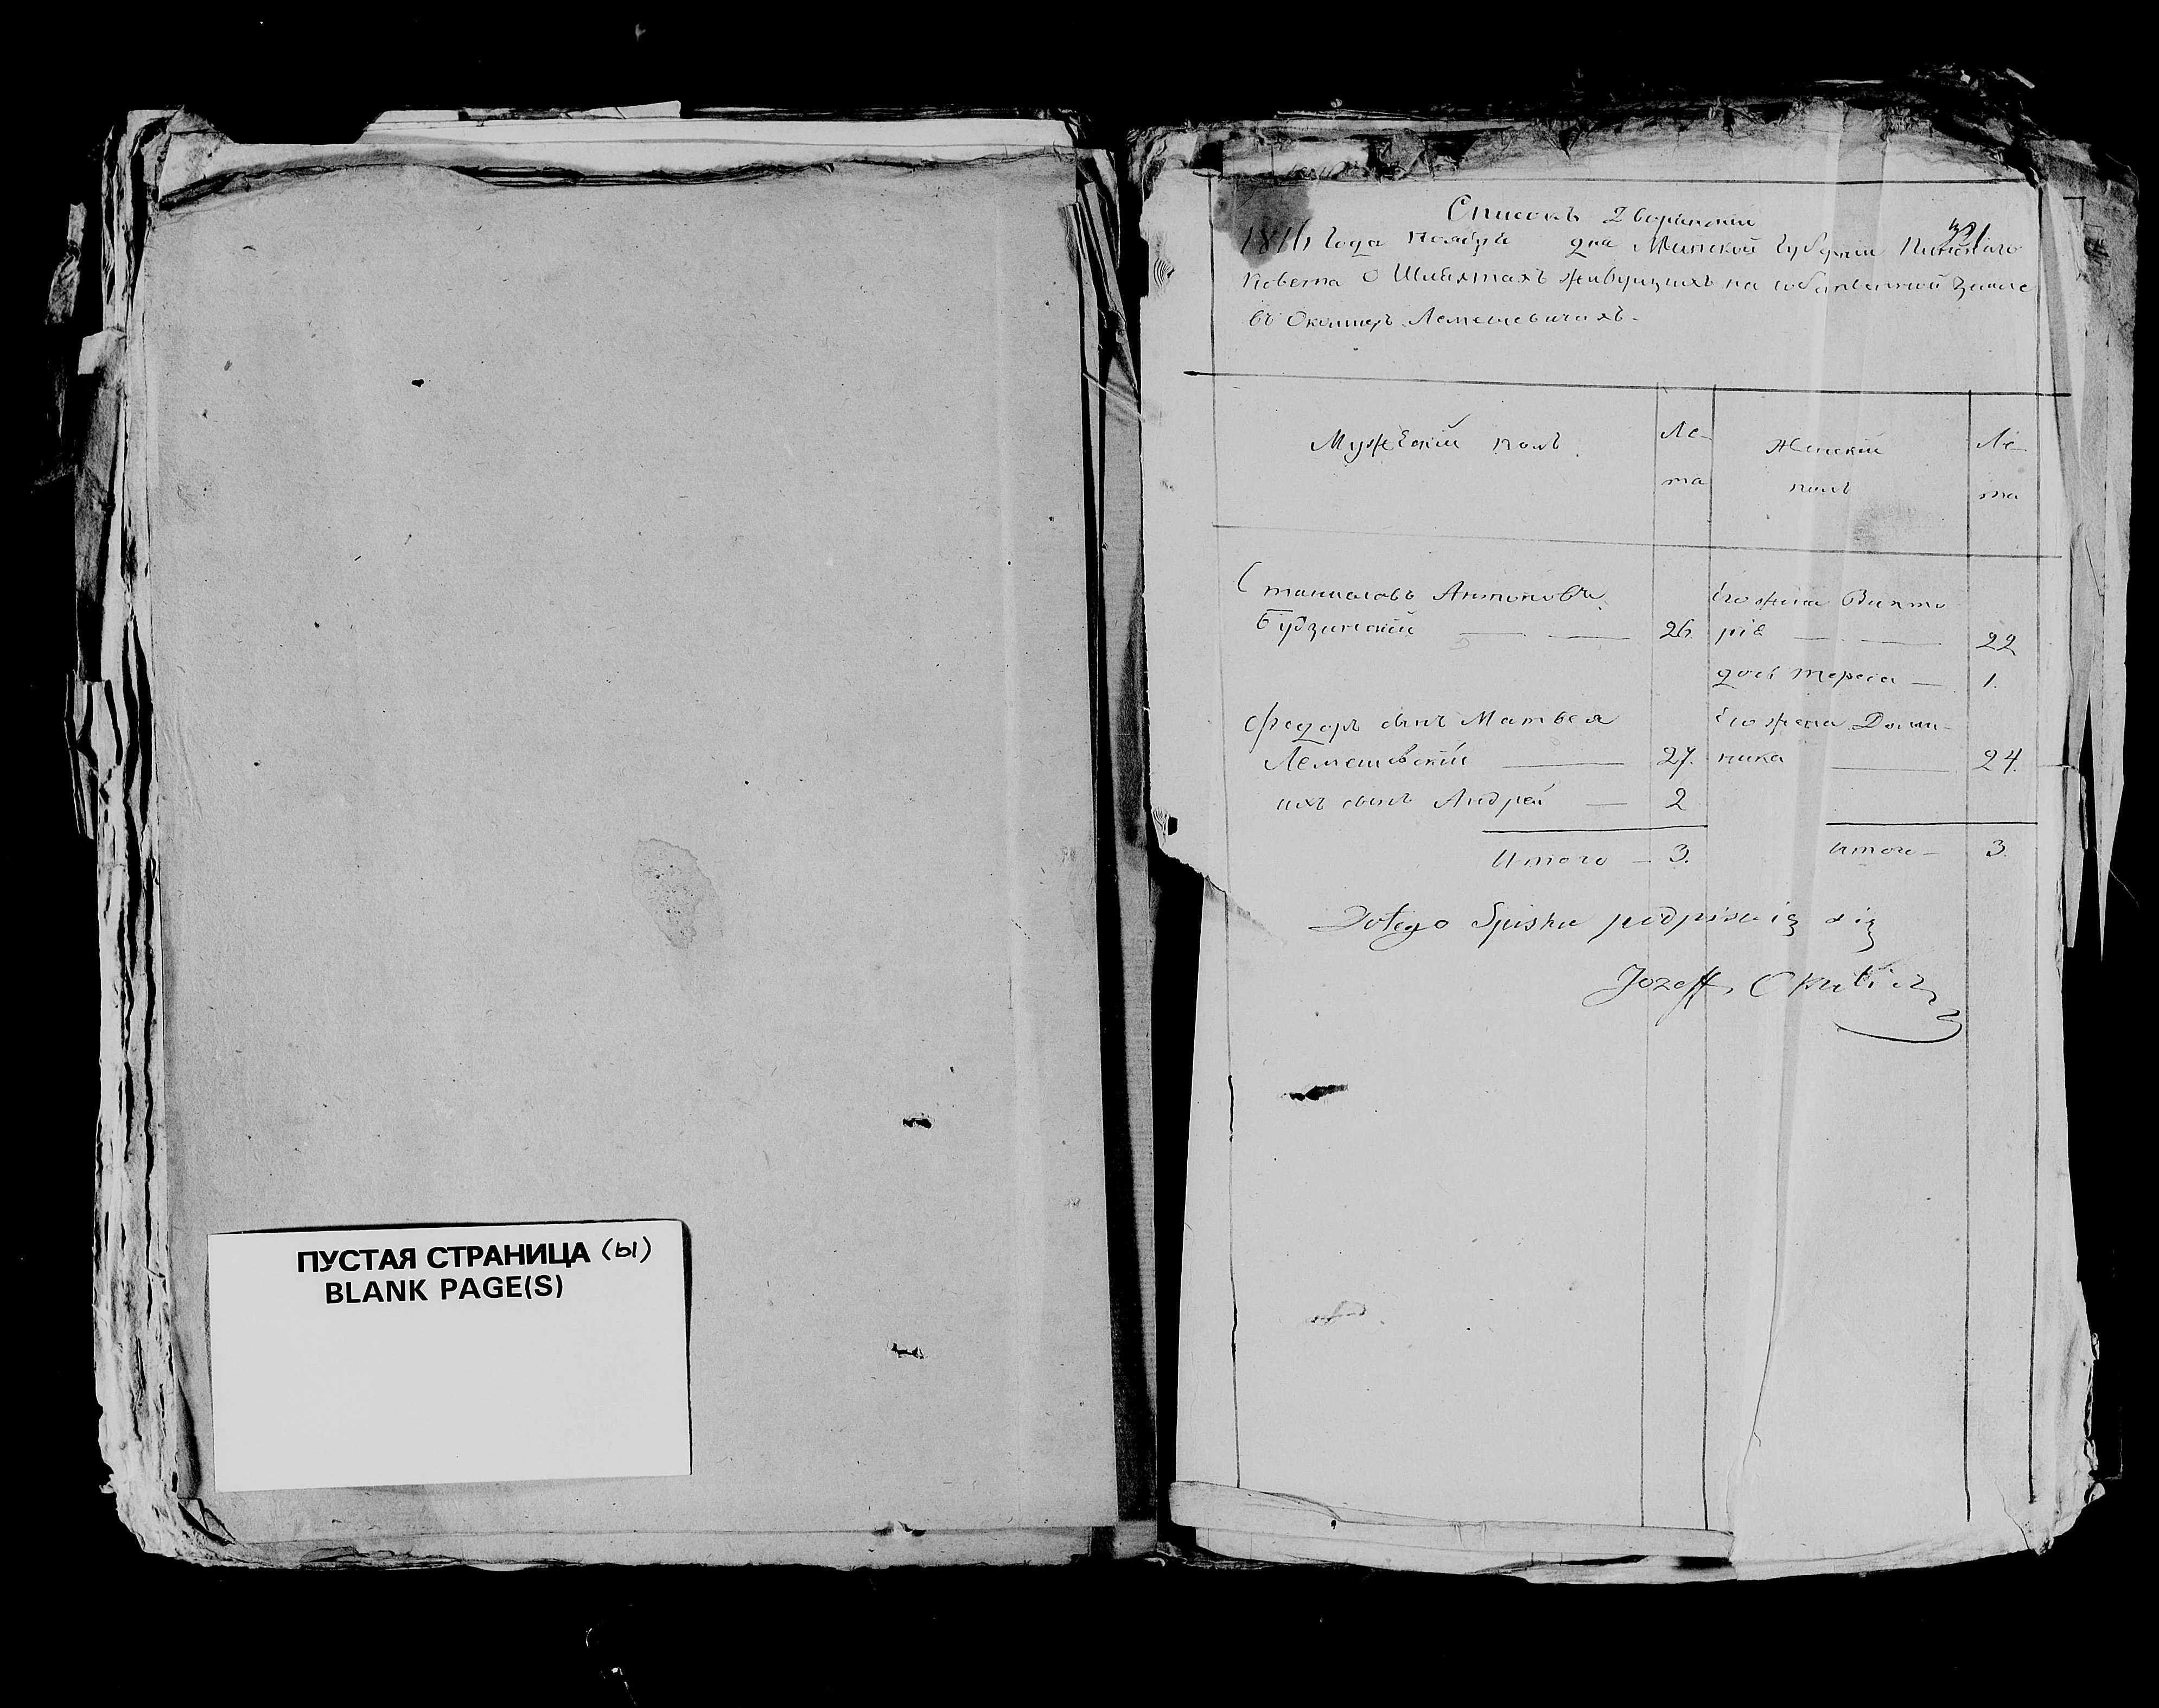 ПУСТАЯ СТРАНИЦА (ы)
BLANK PAGE(S)
Списокъ Дворянскій
года Ноября дня Минской Губерніи Пинскаго
Повета О Шляхтахъ живущихъ на собственной Земле
въ Околицѣ Лемешевичахъ.
Мужескій полъ.
Ле-
та
Женскій
полъ
Ле-
та
Станиславъ Антоновъ
Будзинскій — — 26.
Его жена Викто
рія — — 22
дочь Тереса — 1.
Федоръ сынъ Матвея
Лемешевскій — 27.
Его жена Доми-
ника — 24.
ихъ сынъ Андрей — 2
Итого — 3.
Итого — 3.
Do tego Spisku podpisuię się
Jozeff